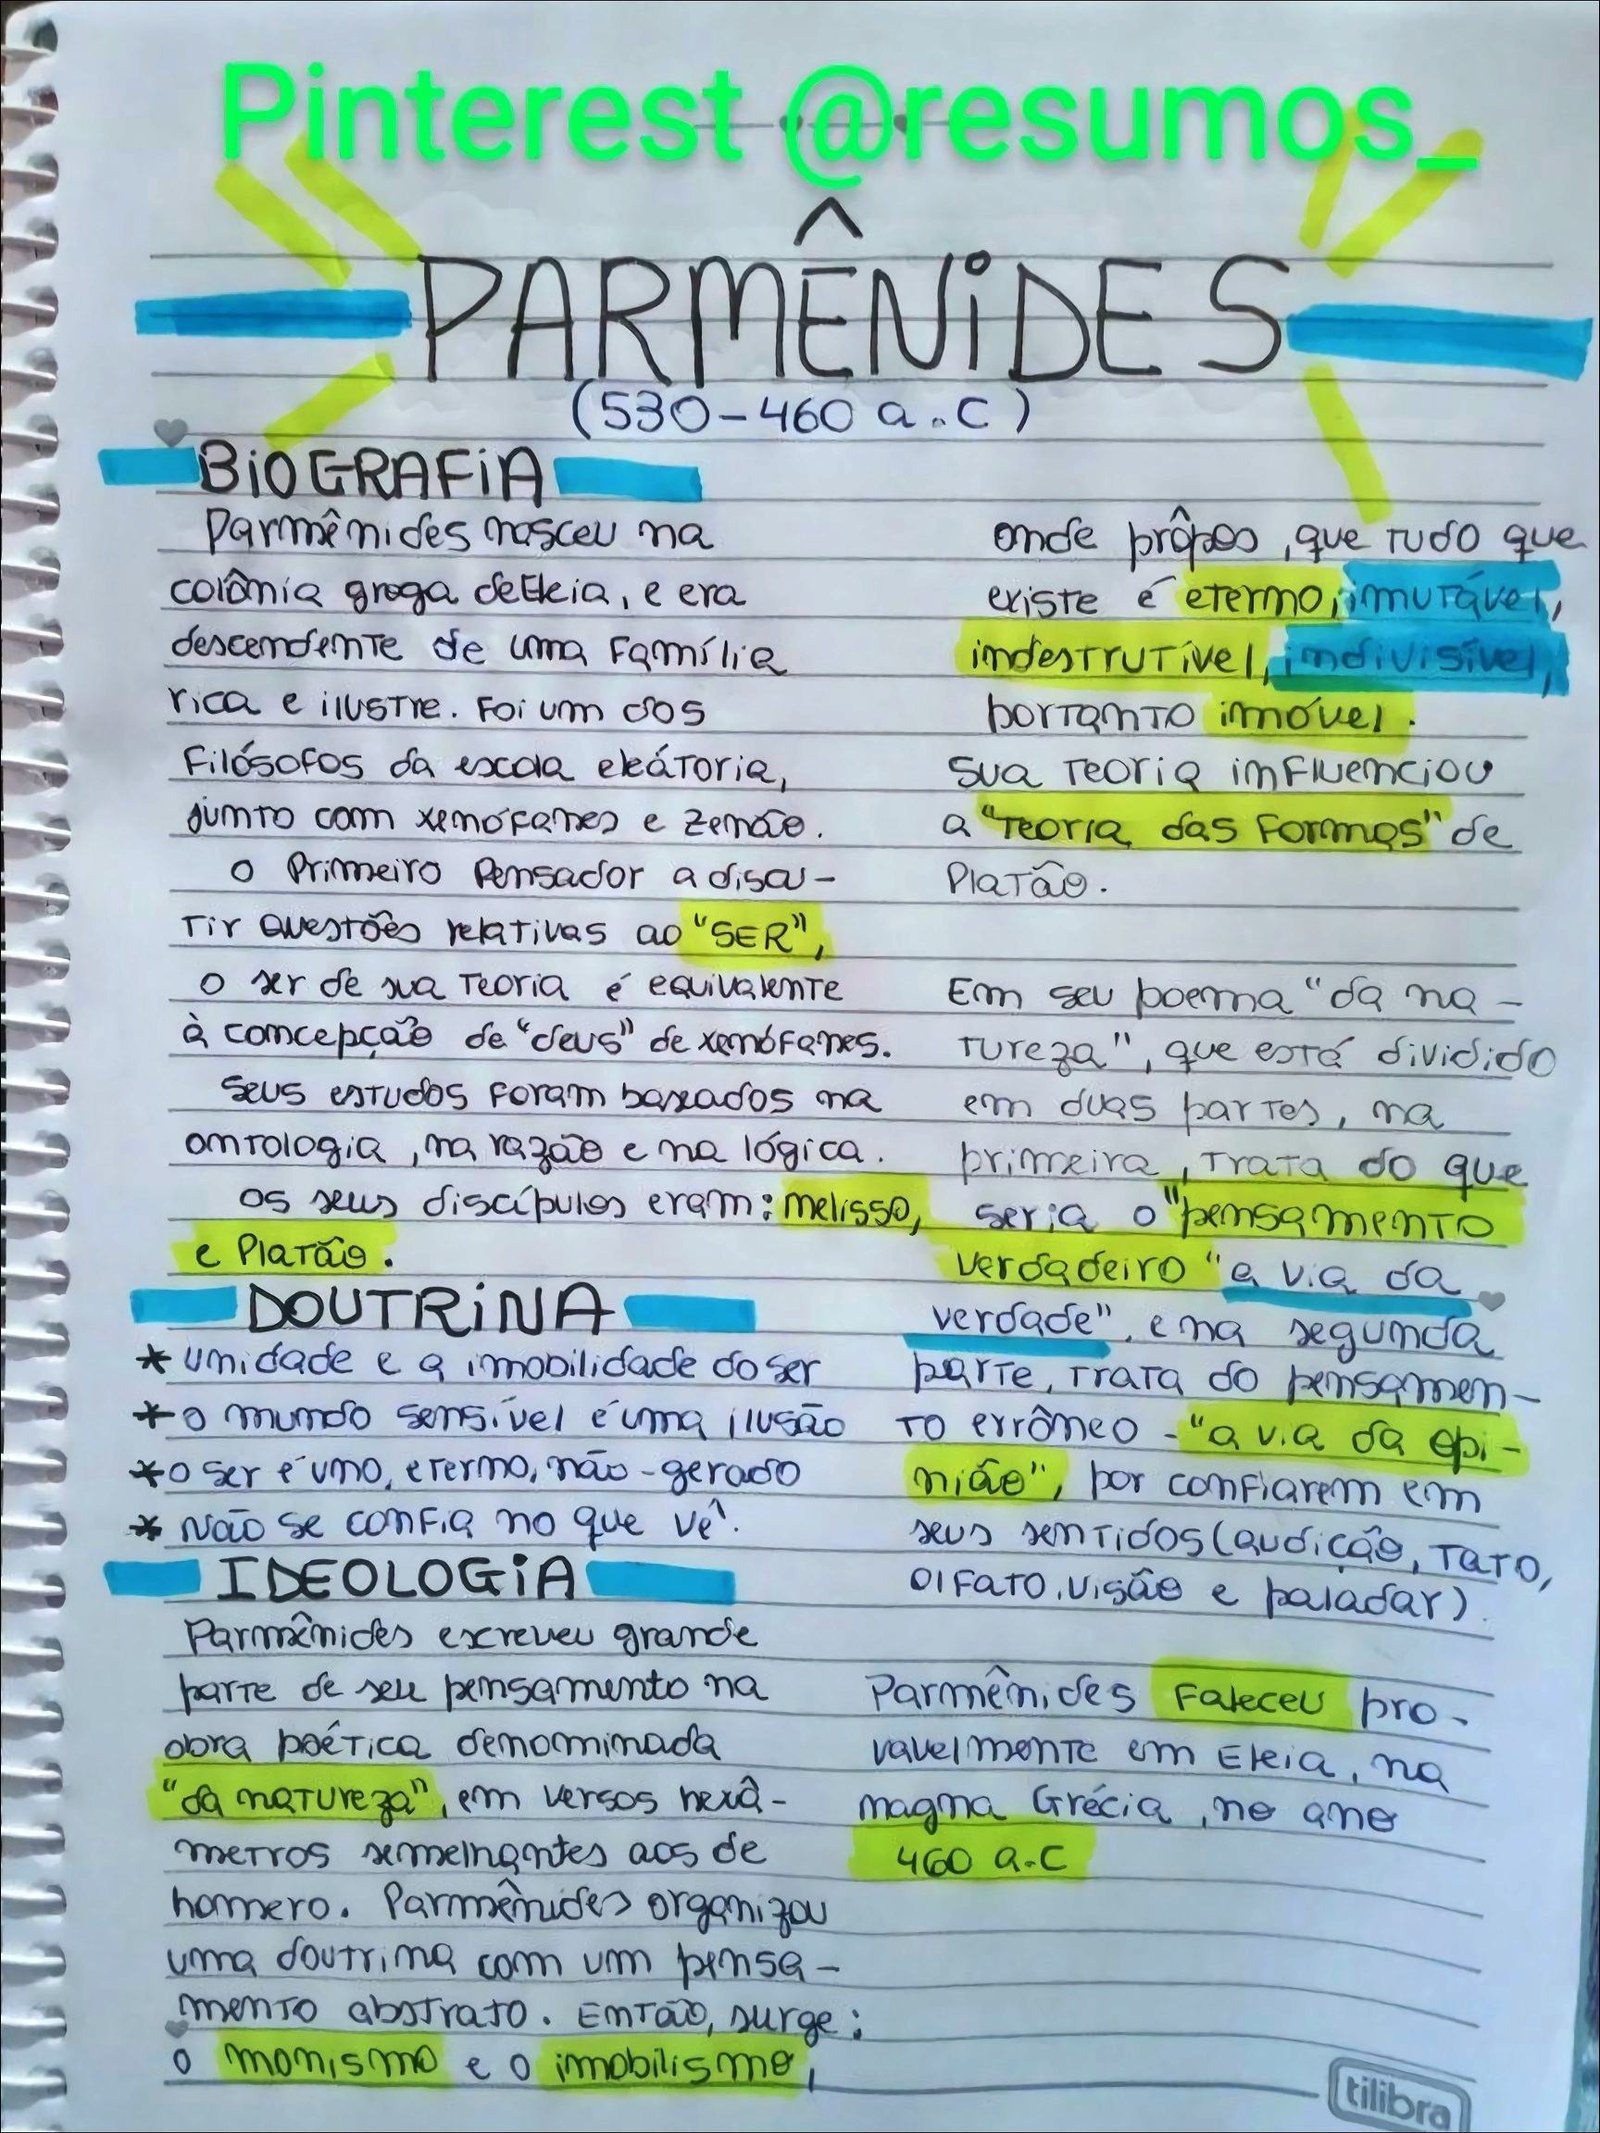 Pinterest @resumos_
PARMÊNIDES
(530-460 a.C)
BIOGRAFIA
Parmênides nasceu na
colônia grega de Eleia, e era
descendente de uma família
rica e ilustre. Foi um dos
filósofos da escola eleátoria,
junto com xenófanes e zenão.
o primeiro pensador a discu-
tir questões relativas ao "SER",
o ser de sua teoria é equivalente
à concepção de "deus" de xenófanes.
seus estudos foram baseados na
ontologia, na razão e na lógica.
os seus discípulos eram: melisso,
e Platão.
DOUTRINA
* unidade e a imobilidade do ser
* o mundo sensível é uma ilusão
* o ser é uno, eterno, não-gerado
* Não se confia no que vê.
IDEOLOGIA
Parmênides escreveu grande
parte de seu pensamento na
obra poética denominada
"da natureza", em versos hexâ-
metros semelhantes aos de
homero. Parmênides organizou
uma doutrina com um pensa-
mento abstrato. Então, surge:
o monismo e o imobilismo,
onde prôpos, que tudo que
existe é eterno, imutável,
indestrutível, indivisível,
portanto imóvel.
sua teoria influenciou
a "teoria das formas" de
Platão.
Em seu poema "da na-
tureza", que está dividido
em duas partes, na
primeira, trata do que
seria o "pensamento
verdadeiro" a via da
verdade", e na segunda
parte, trata do pensamen-
to errôneo - "a via da opi-
nião", por confiarem em
seus sentidos (audição, tato,
olfato, visão e paladar).
Parmênides faleceu pro-
vavelmente em Eleia, na
magna Grécia, no ano
460 a.C
tilibra